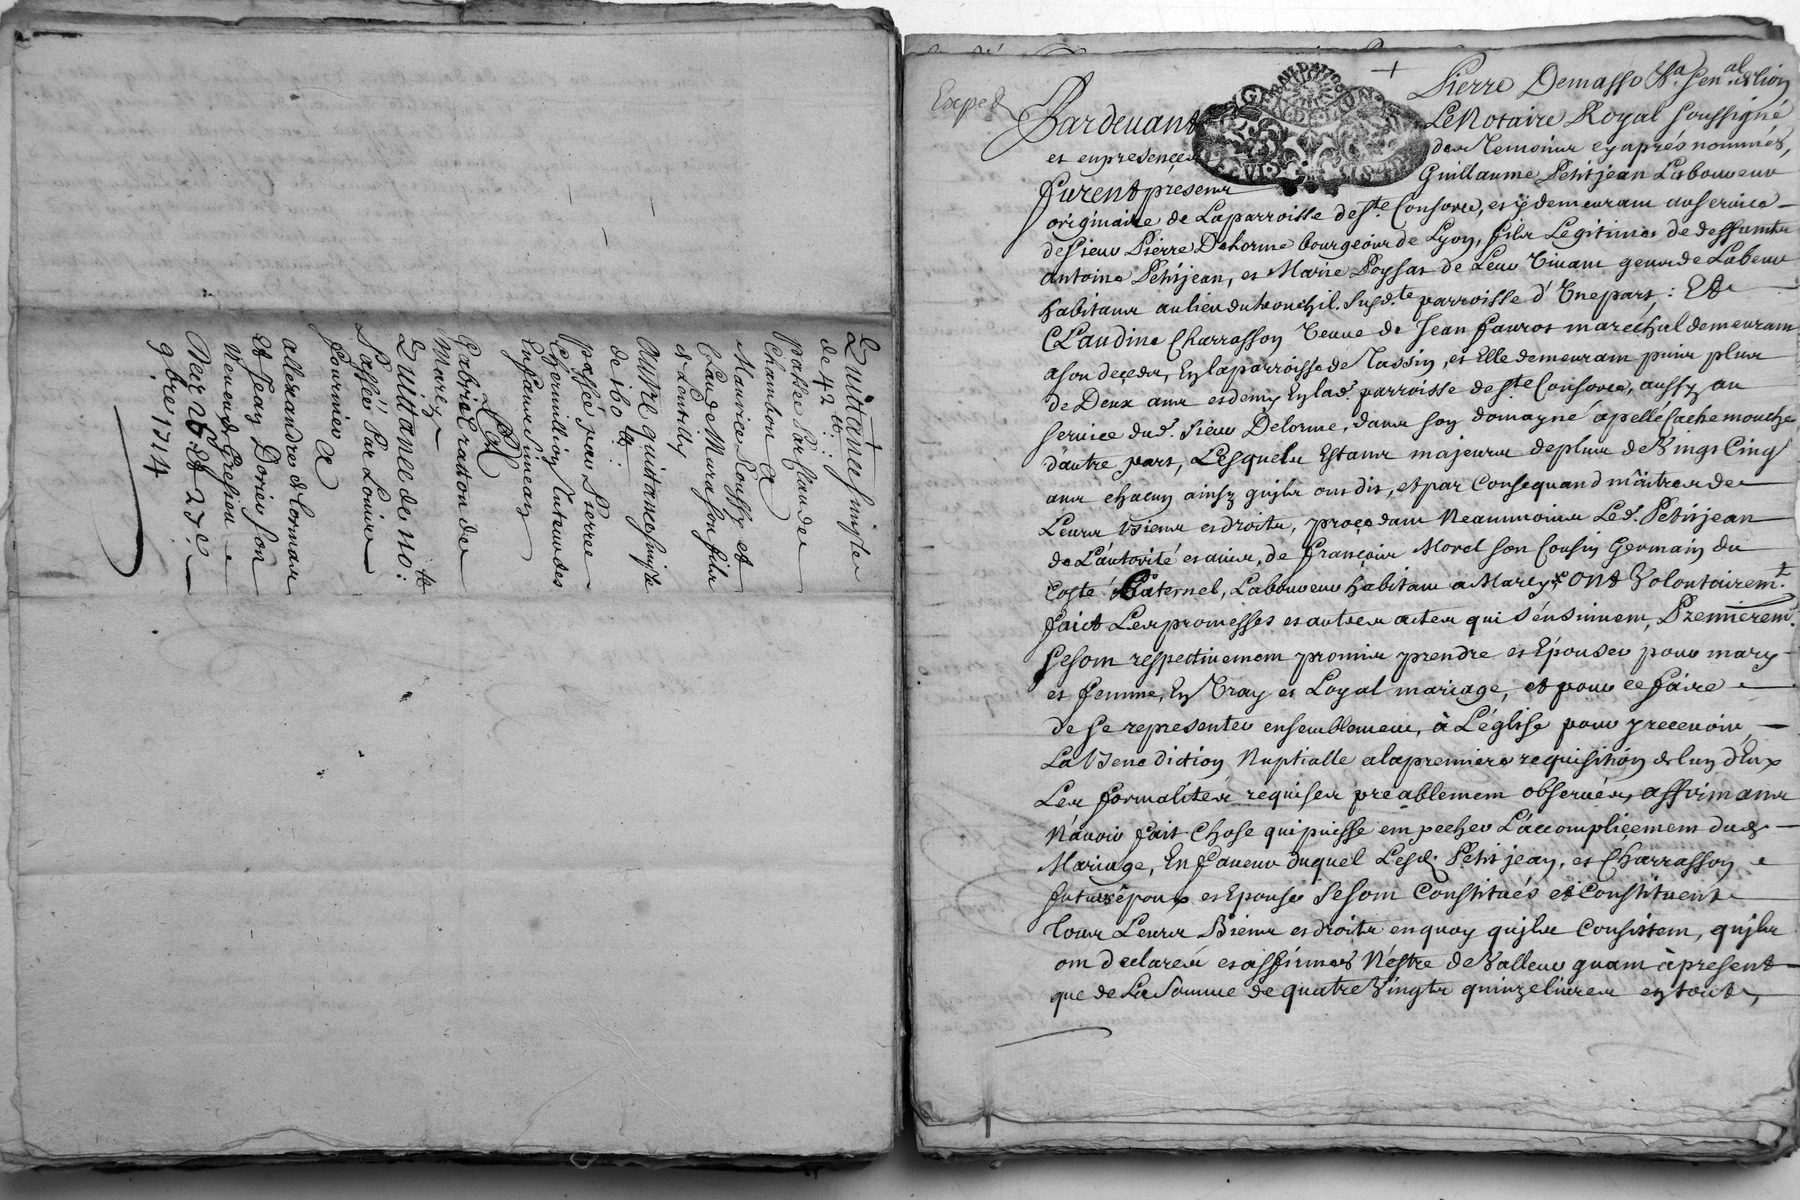 Quittance simple
de 42 tt:
passée par Claude
Chambon a
Maurice Rousset et
Claude Marason fils
de Lentilly
Autre quittance simple
de 160 tt:
passée par Pierre
Chermillion tuteur des
Enfans Simean
Gabriel ratton de
Marcy
Quittance de 110: tt
Passée Par Louise
fournier a
allexandre
Et Jean Dorier son
Neveu de Gresieu
Du 26: & 27:e
9bre 1714
Exped
Pierre Demasso Sen.al de Lion
Pardevant Le Notaire Royal soussigné
et en presence des Temoins cy après nommés,
furent presens Guillaume Petitjean Laboureur
originaire de La parroisse de Ste. Consorce, et y demeurant au service
de sieur Pierre Delorme bourgeois de Lyon, fils Legitime de deffunts
antoine Petitjean, et Marie Poysat de Leur Vivant gens de Labeur
habitans au lieu du susd.te parroisse d'Une part,: Et
CLaudine Charrasson Veuve de Jean fauros maréchal demeurant
a son deçeds, En la parroisse de Tassin, et Elle demeurant puis plus
de Deux ans et demy En lad. parroisse de Ste Consorce, aussy au
service dud. sieur Delorme, dans son domayne apellé Cachemouche
d'autre part, Lesquels Estans majeurs de plus de Vingt Cinq
ans chacun ainsy qu'jls ont dit, et par Consequand maîtres de
Leurs biens et droits, procedant Neanmoins Led. Petitjean
de L'autorité et avis, de françois Morel son Cousin Germain du
Costé Paternel, Laboureur habitant a Marcy, ont Volontairemt.
faict Les promesses et autres actes qui s'ensuivent, Premierem.t
se sont respectivement promis prendre et Épouser pour mary
et femme, En Vray et Loyal mariage, et pour ce faire
de se representer ensemblement, à L'église pour y recevoir
La Benediction Nuptialle a la premiere requisition de l'un d'Eux
Les formalités requises preablement observées, affirmans
N'avoir fait Chose qui puisse empecher L'accompliçement dud.
Mariage, En faveur duquel Lesd. Petitjean, et Charrasson
futurs époux et Epouse se sont Constitués et Constituent
tous Leurs Biens et droits en quoy qu'jls Consistent, qu'jls
ont declaré et affirmé N'estre de Valleur quant à present
que de La Somme de quatre Vingts quinze livres en tout,